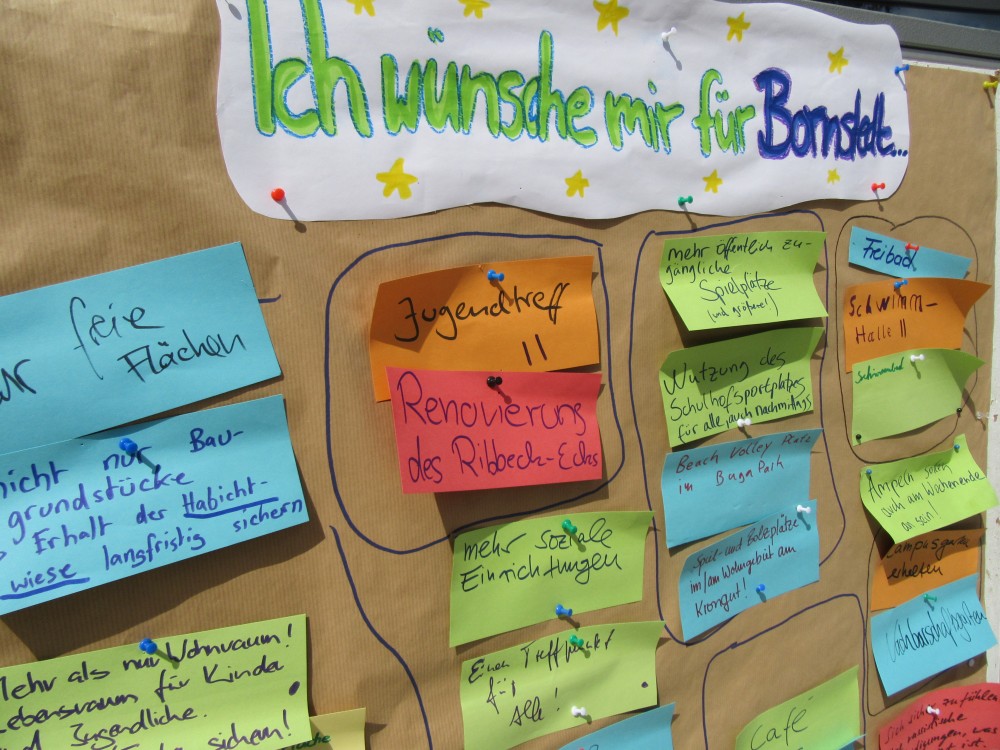 Ich wünsche mir für Bornstedt...
feie
Flächen
nicht nur Bau-
grundstücke
Erhalt der Habicht-
wiese langfristig sichern
Mehr als nur Wohnraum!
Lebensraum für Kinder
und Jugendliche.
sichern!
Jugendtreff
!!
Renovierung
des Ribbeck-Ecks
mehr soziale
Einrichtungen
Einen Treffpunkt
für
Alle!
mehr öffentlich zu-
gängliche
Spielplätze
(und größere!)
Nutzung des
Schulhofsportplatzes
für alle, auch nachmittags
Beach Volley Platz
im Buga Park
Spiel- und Bolzplätze
im/am Wohngebiet am
Krongut!
Café
Freibad
Schwimm-
Halle !!
Schwimmbad
Ampeln sollen
auch am Wochenende
an sein!
erhalten
Nachbarschaftsgarten